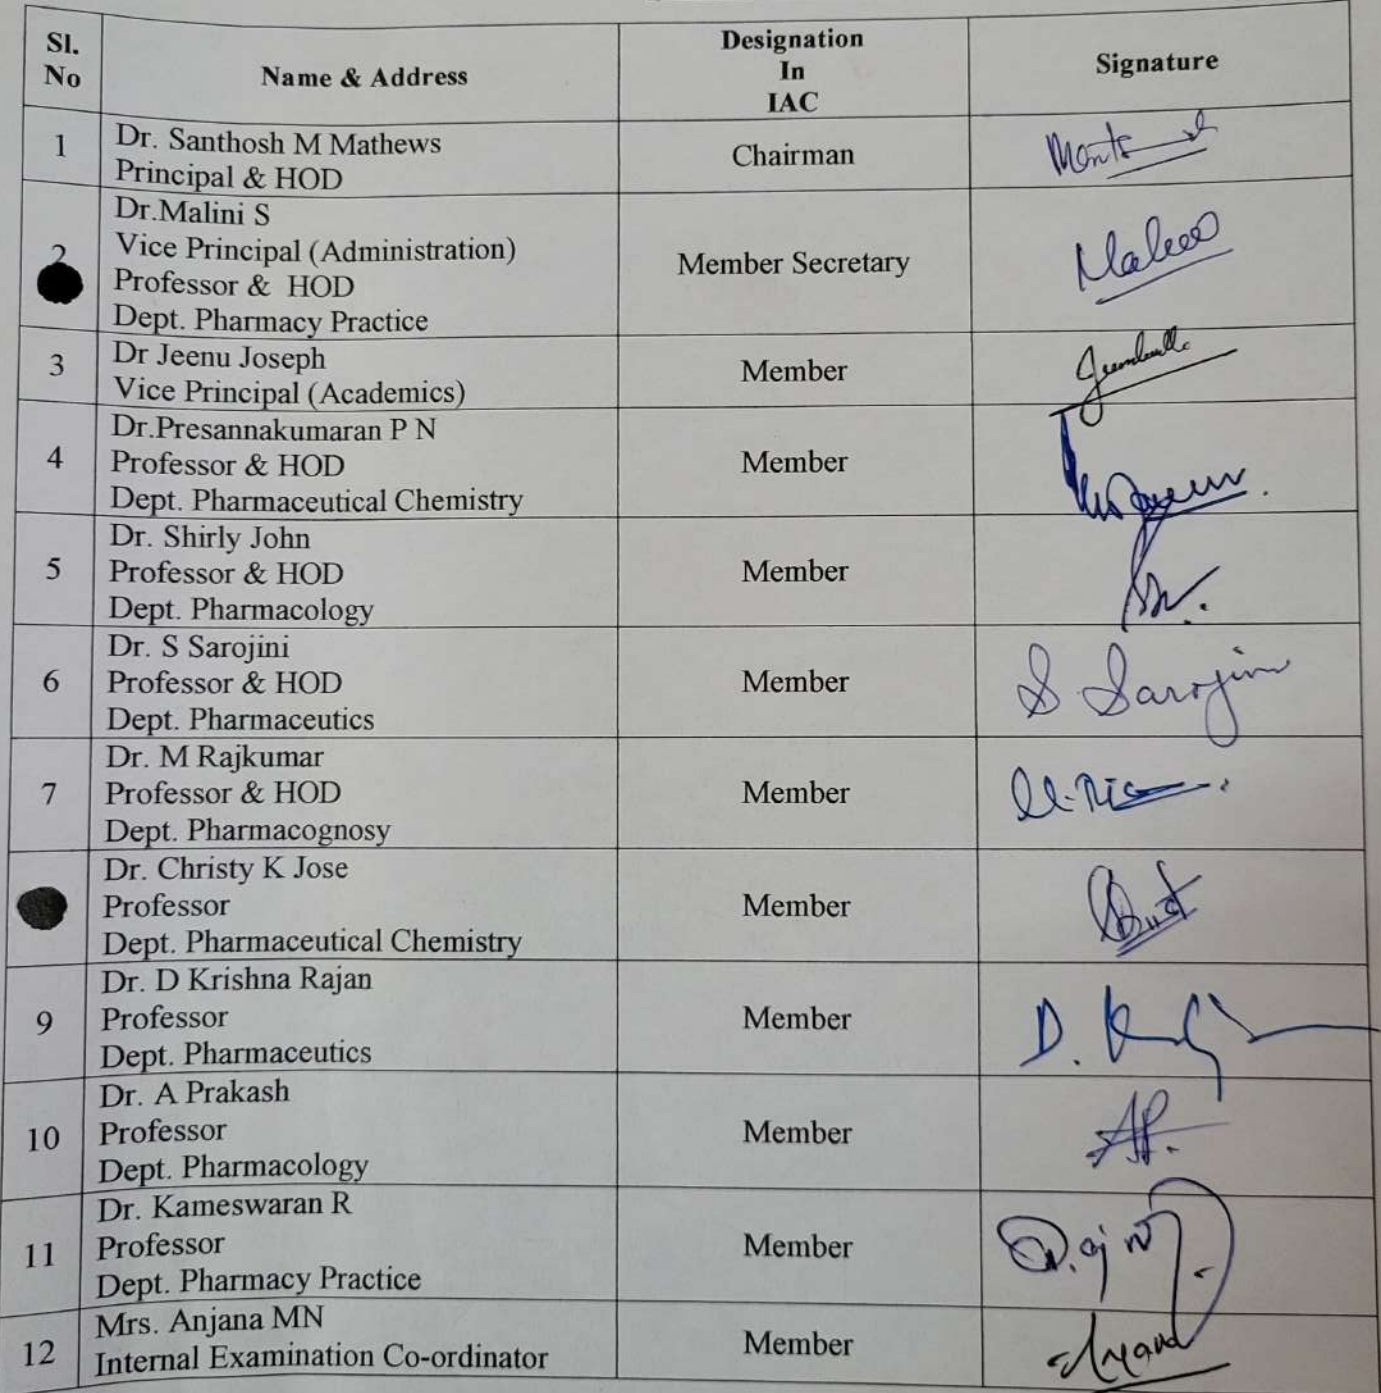 Sl.
No
Name & Address
Designation
In
IAC
Signature
1
Dr. Santhosh M Mathews
Principal & HOD
Chairman
2
Dr.Malini S
Vice Principal (Administration)
Professor & HOD
Dept. Pharmacy Practice
Member Secretary
3
Dr Jeenu Joseph
Vice Principal (Academics)
Member
4
Dr.Presannakumaran P N
Professor & HOD
Dept. Pharmaceutical Chemistry
Member
5
Dr. Shirly John
Professor & HOD
Dept. Pharmacology
Member
6
Dr. S Sarojini
Professor & HOD
Dept. Pharmaceutics
Member
S Sarojini
7
Dr. M Rajkumar
Professor & HOD
Dept. Pharmacognosy
Member
Dr. Christy K Jose
Professor
Dept. Pharmaceutical Chemistry
Member
9
Dr. D Krishna Rajan
Professor
Dept. Pharmaceutics
Member
10
Dr. A Prakash
Professor
Dept. Pharmacology
Member
11
Dr. Kameswaran R
Professor
Dept. Pharmacy Practice
Member
12
Mrs. Anjana MN
Internal Examination Co-ordinator
Member